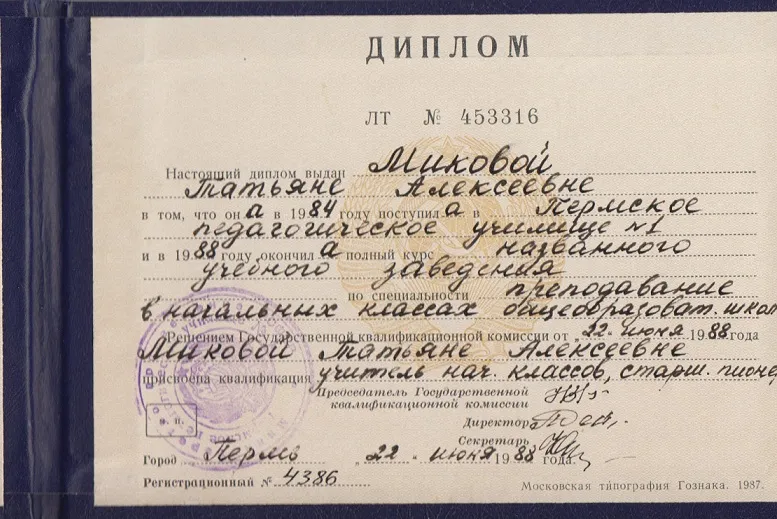 ДИПЛОМ
ЛТ № 453316
Настоящий диплом выдан Миковой
Татьяне Алексеевне
в том, что она в 1984 году поступила в Пермское
педагогическое училище №1
и в 1988 году окончила полный курс названного
учебного заведения
по специальности преподавание
в начальных классах общеобразоват. школ
Решением Государственной квалификационной комиссии от „22 июня 1988 года
Миковой Татьяне Алексеевне
присвоена квалификация учитель нач. классов, старш. пионер
Председатель Государственной
квалификационной комиссии
Директор
Секретарь
м. п.
Город Пермь „22 июня 1988 года.
Регистрационный № 4386
Московская типография Гознака. 1987.